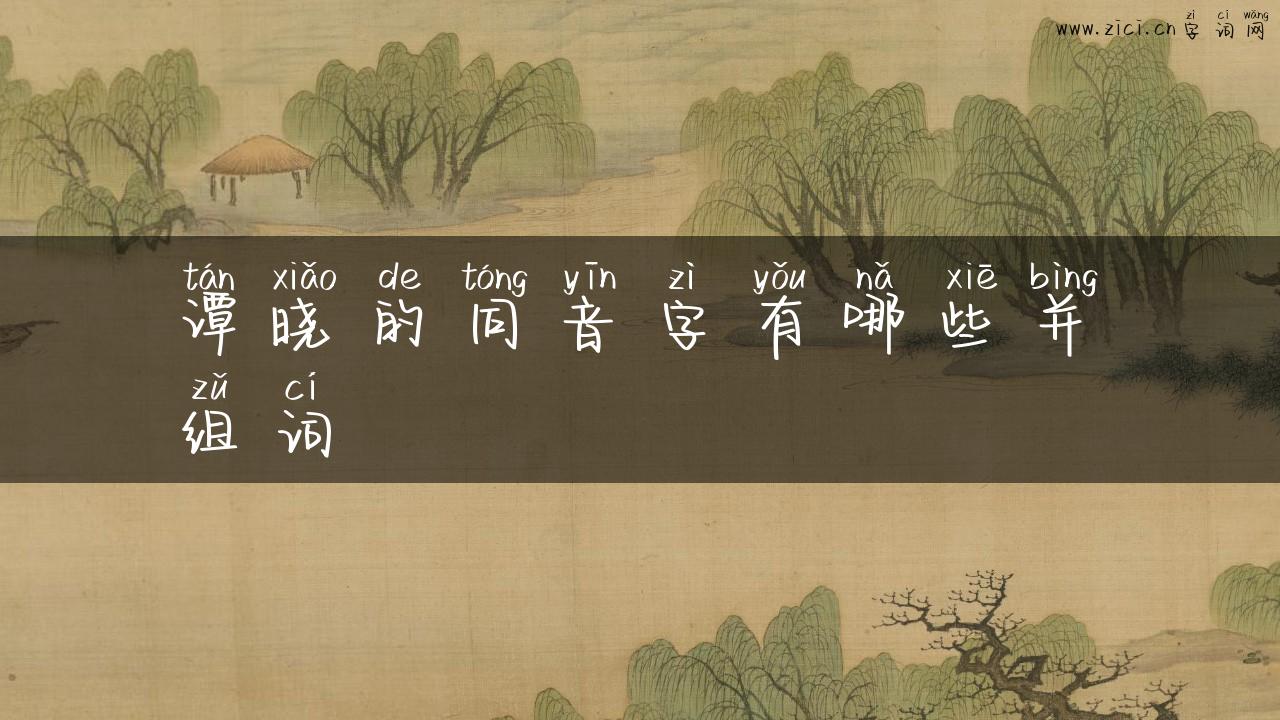 zì cí wǎng
www.zici.cn字词网
tán xiǎo de tóng yīn zì yǒu nǎ xiē bìng
谭晓的同音字有哪些并
zǔ cí
组词